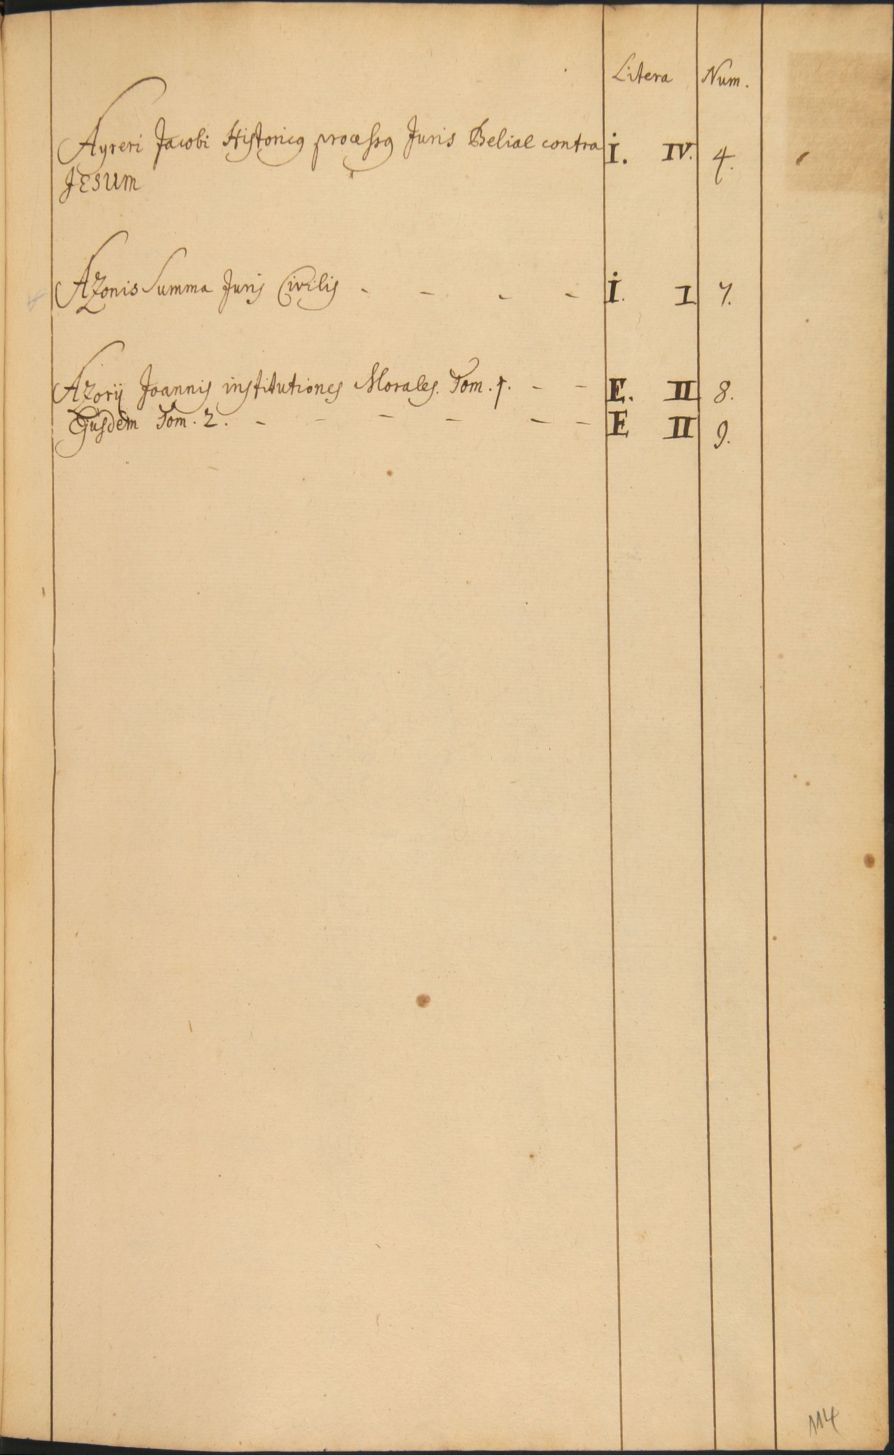 Litera Num.
Ayreri Jacobi Historicꝰ processꝰ Juris Belial contra İ. IV. 4.
JESUM
Azonis Summa Juris Civilis - - - - İ. I 7.
Azorij Joannis institutiones Morales. Tom. 1. - - E. II 8.
Ejusdem Tom. 2. - - - - - - E II 9.
114